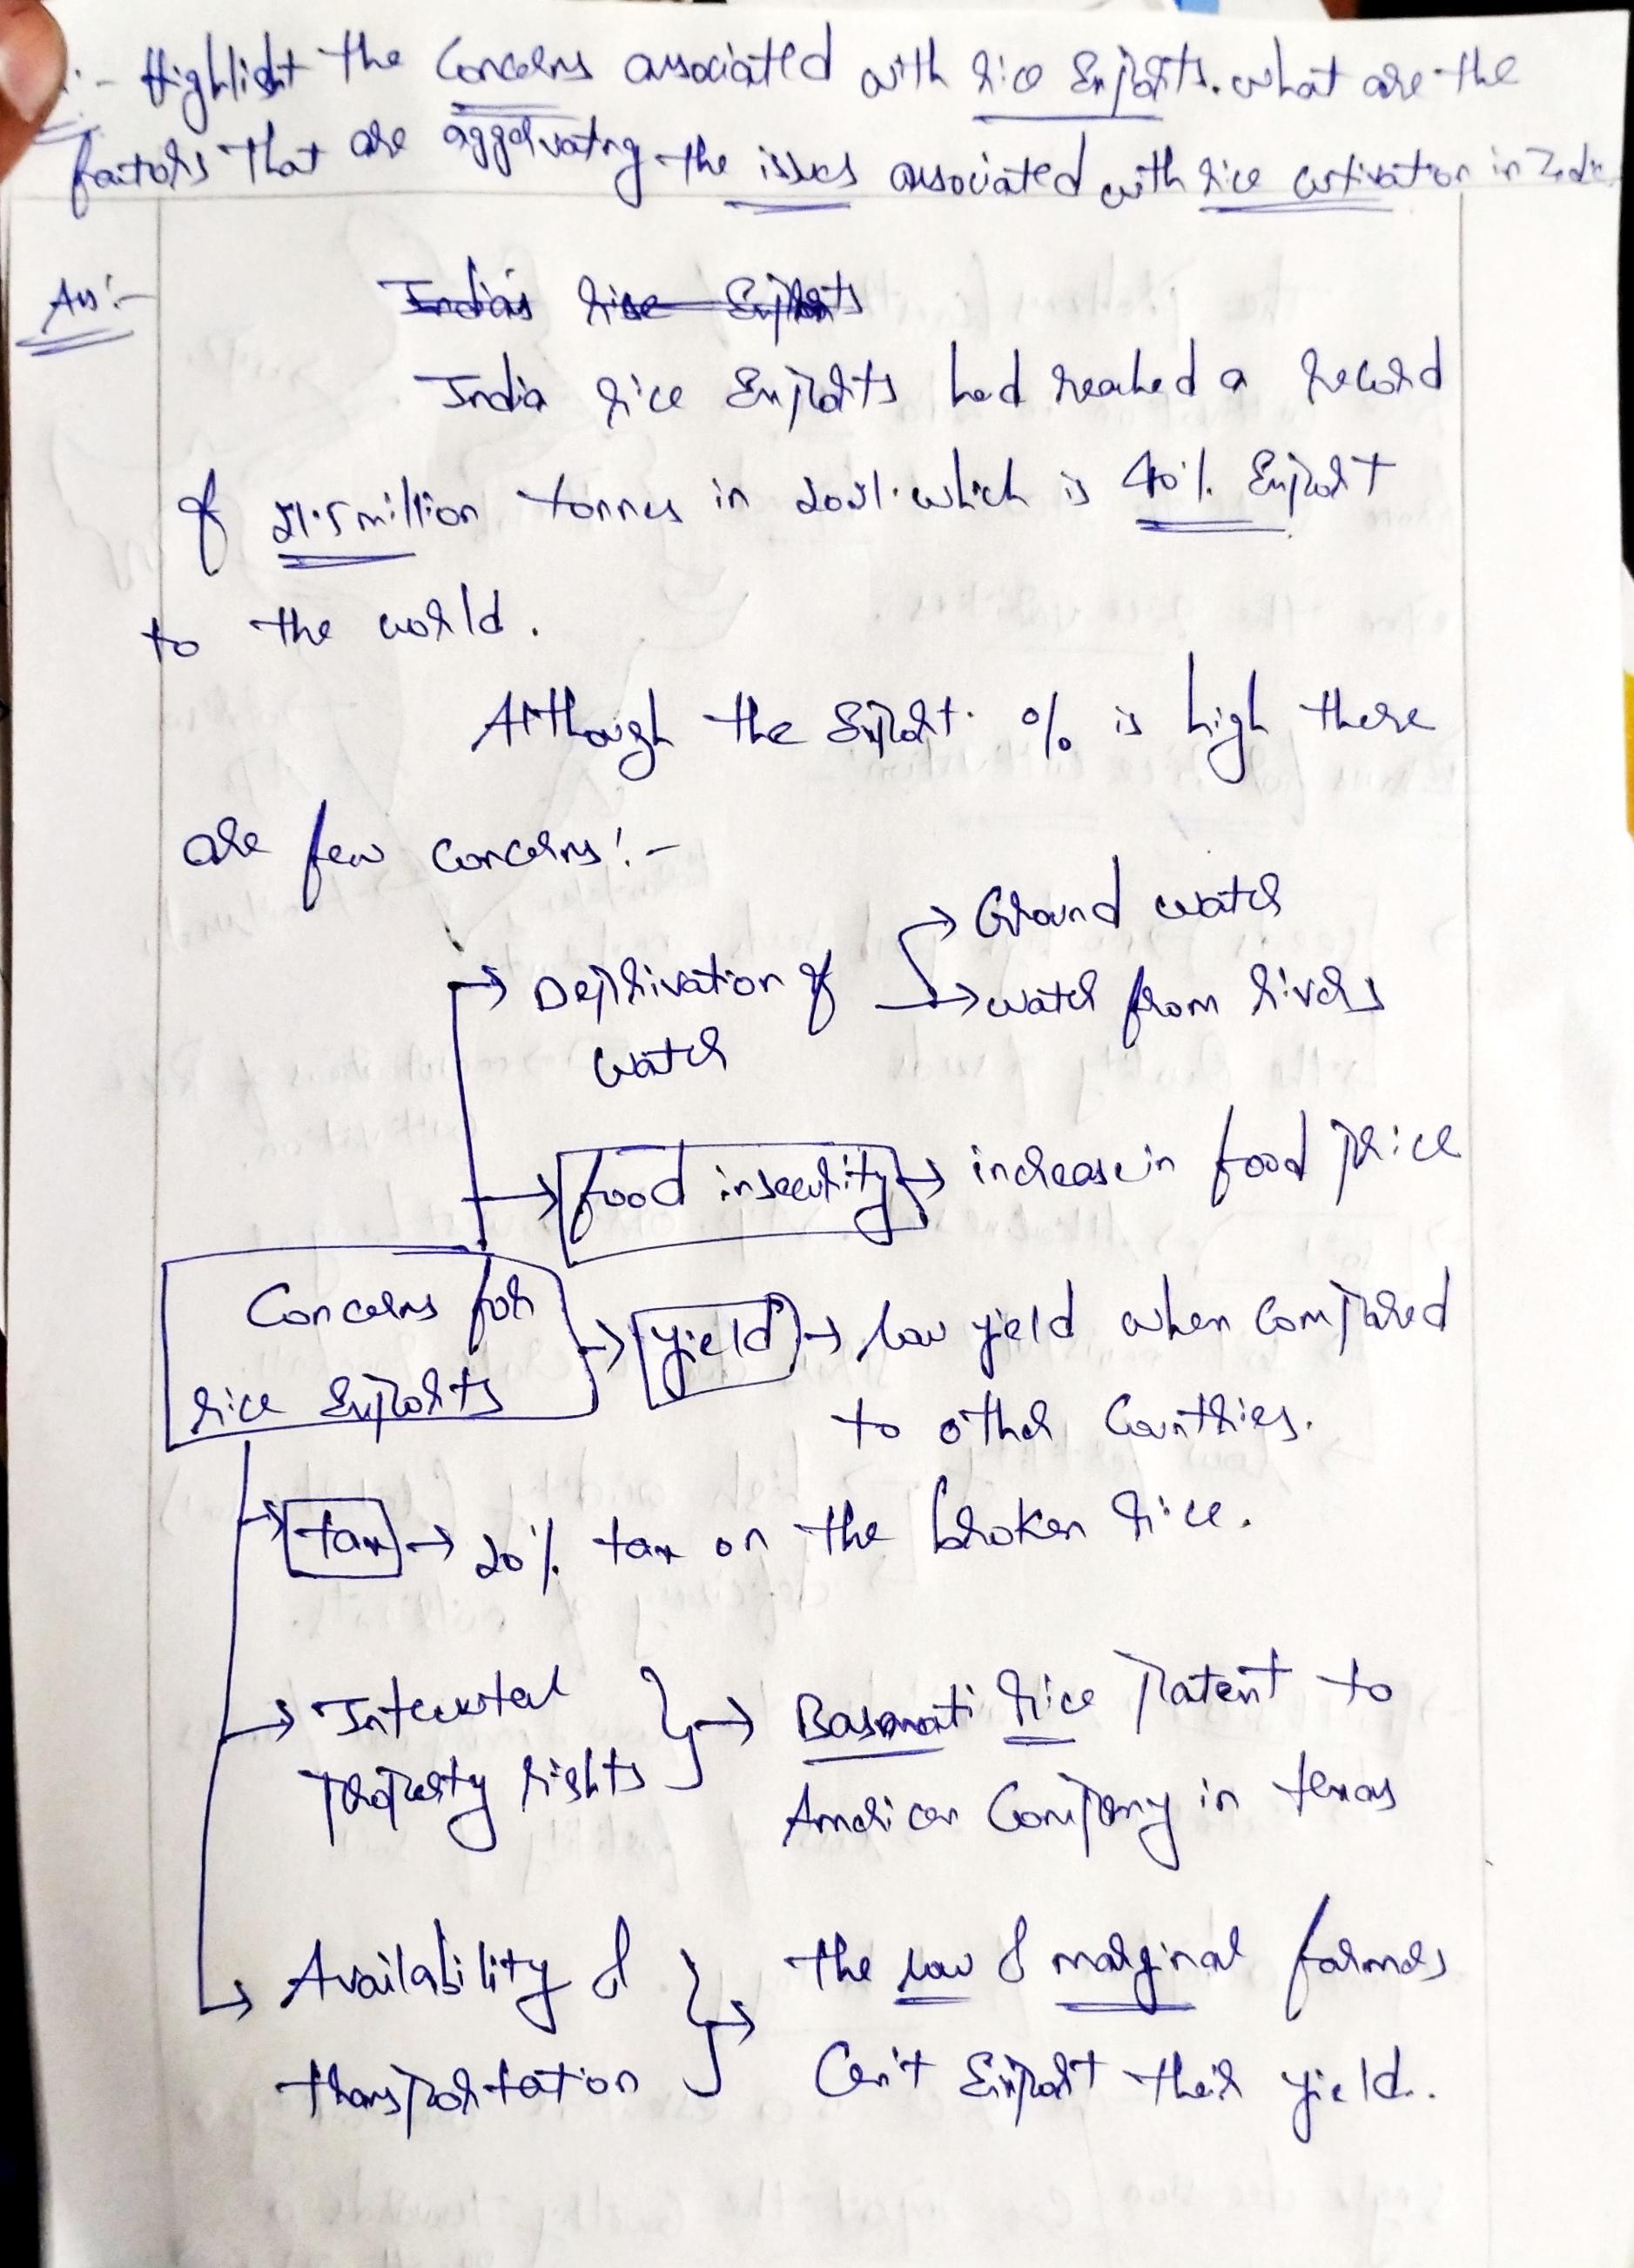 :- Highlight the Concerns associated with rice Exports. what are the
factors that are aggervating the issues associated with rice cultivation in India
Ans:-
India's rice Exports
India rice Exports had reached a record
of 21.5 million tonnes in 2021. which is 40% Export
to the world.
Although the Export % is high there
are few concerns:-
→ Deprivation of water → Ground water
→ water from rivers
→ food insecurity → increase in food price
Concerns for rice Exports
→ yield → low yield when compared
to other Countries.
→ tax → 20% tax on the broken rice.
→ Intellectual property rights } → Basmati rice patent to
American Company in texas
→ Availability & transportation } → the low & marginal farmers
Can't Export their yield.